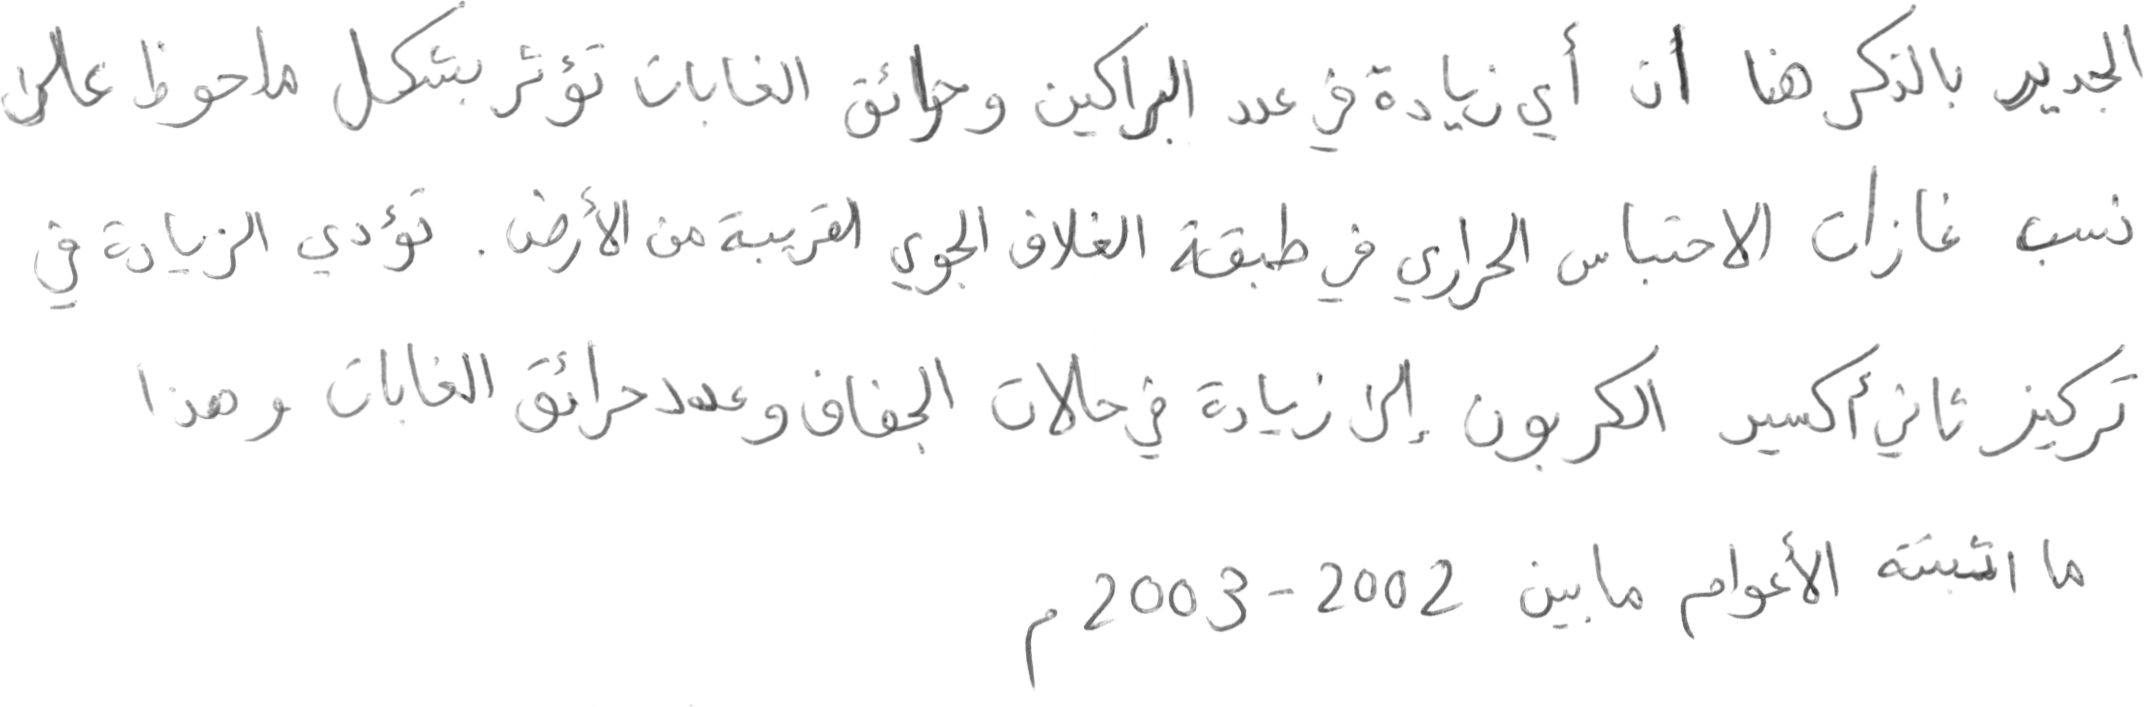 الجدير بالذكر هنا أن أي زيادة في عدد البراكين وحرائق الغابات تؤثر بشكل ملحوظ على
نسب غازات الاحتباس الحراري في طبقة الغلاف الجوي القريبة من الأرض. تؤدي الزيادة في
تركيز ثاني أكسيد الكربون إلى زيادة في حالات الجفاف وعدد حرائق الغابات وهذا
ما اثبتته الأعوام ما بين 2002-2003م